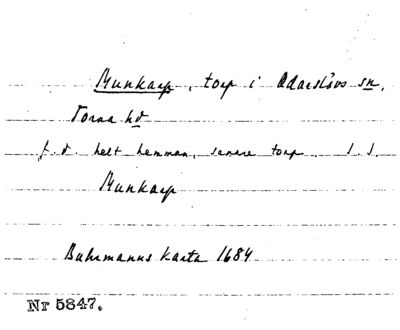 Munkarp, torp i Odarslövs sn,
Torna hd
f.d. helt hemman, senare torp. s.s.
Munkarp
Buhrmanns karta 1684
Nr 5847.